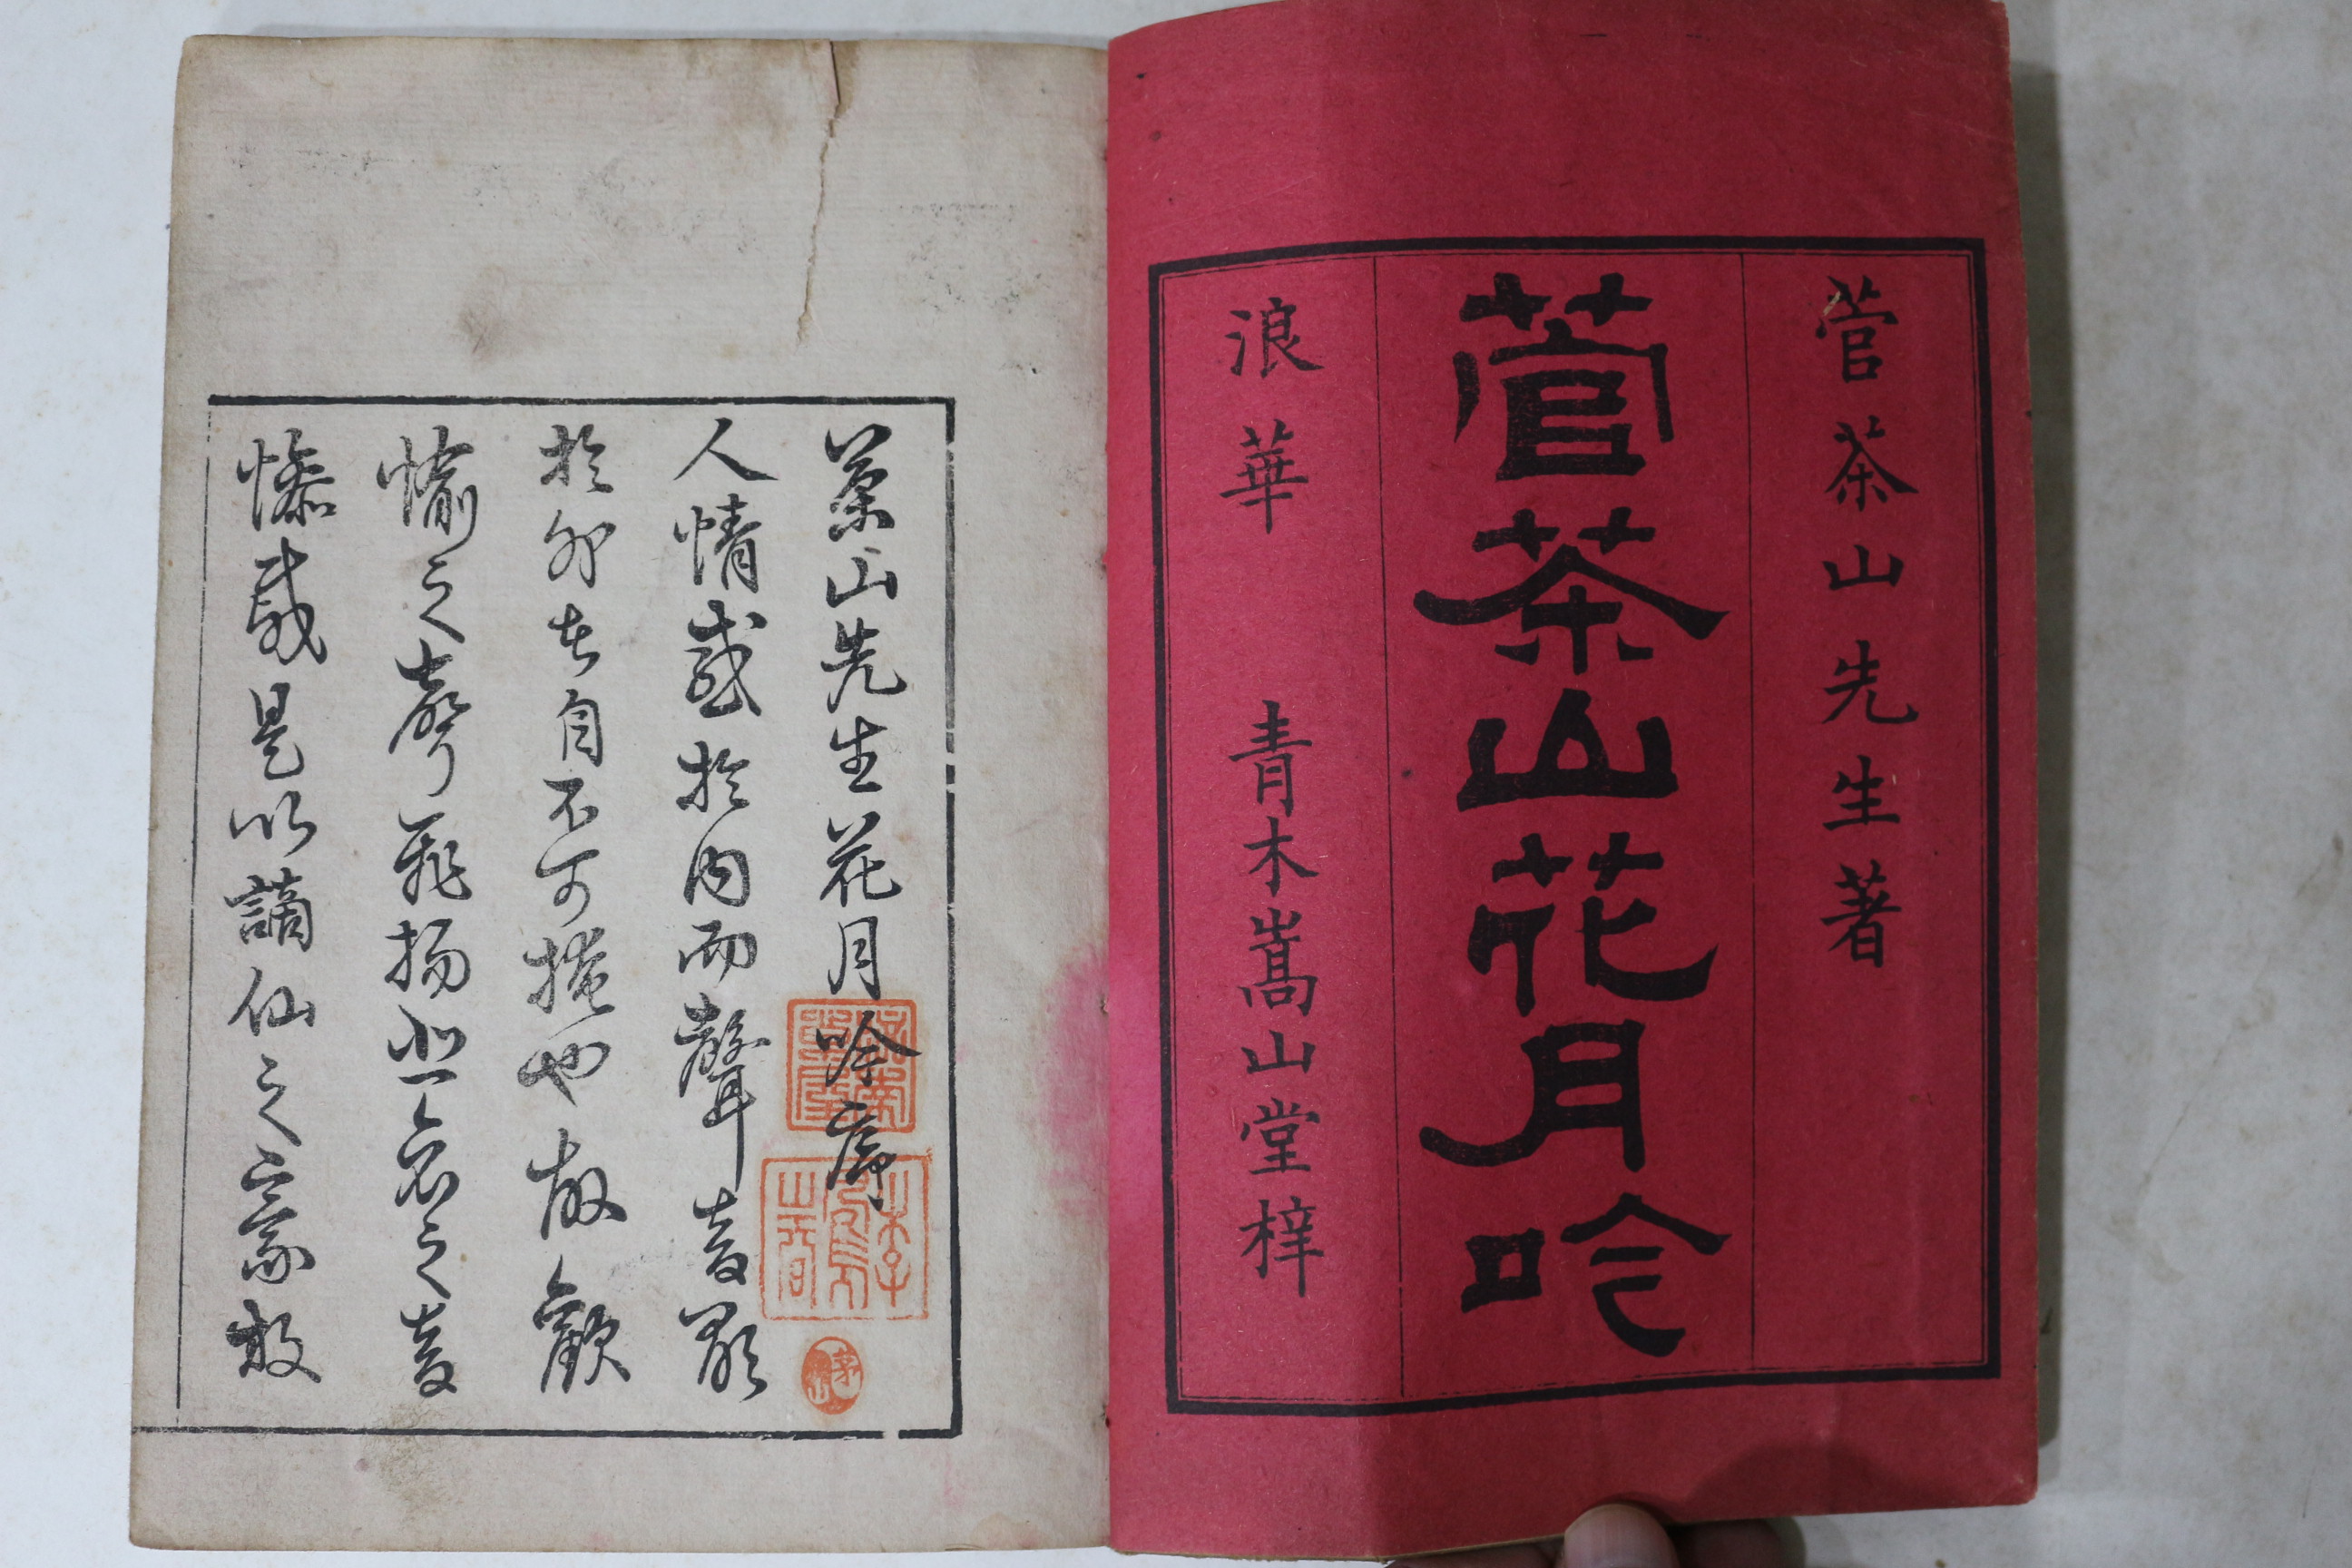 菅茶山先生著
菅茶山花月吟
浪華　青木嵩山堂梓
山先生花月吟序
人情感於内而聲音發
於外者自不可掩也故歡
愉之聲飛揚悲哀之音
惨慼是以謫仙之豪放